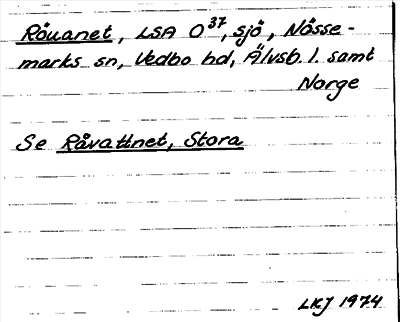 Råuanet, LSA O37, sjö, Nösse-
marks sn, Vedbo hd, Älvsb. l. samt
Norge
Se Råvattnet, Stora
LKJ 1974